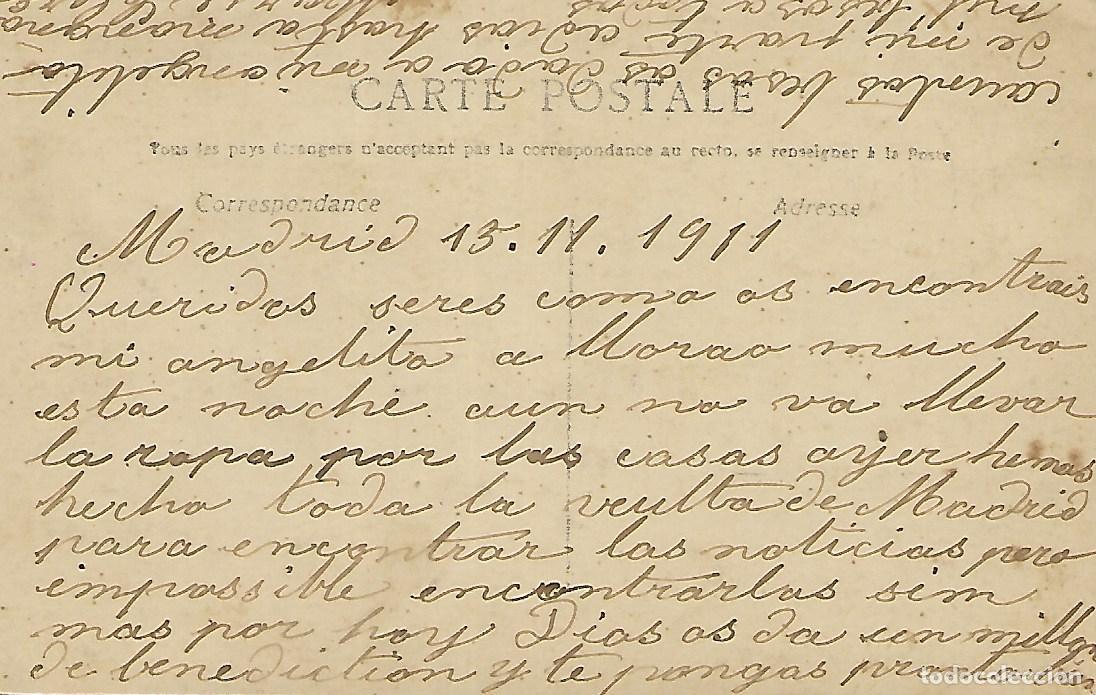 CARTE POSTALE
Tous les pays étrangers n'acceptent pas la correspondance au recto, se renseigner à la Poste
Correspondance Adresse
Madrid 13.11.1911
Queridos seres como os encontrais
mi angelito a llorao mucho
esta noche aun no va llevar
la ropa por las casas ayer hemos
hecho toda la veulta de Madrid
para encontrar las noticias pero
impossible encontrarlas sim
mas por hoy Dios os da un millon
de benediction y te pongas pronto
cuantos besos as dado a mi angelito
de mi parte adios hasta mañana
mil besos a todos
todocoleccion